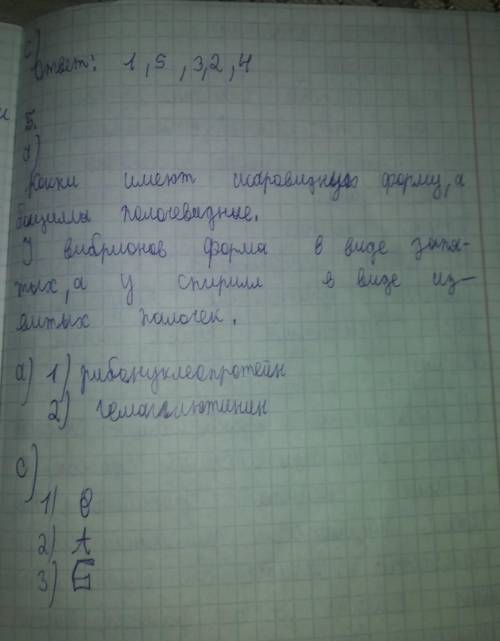 с)
Ответ: 1, 5, 3, 2, 4
5.
а)
Кокки имеют шаровидную форму, а
бациллы палочевидные.
У вибрионов форма в виде запя-
тых, а у спирилл в виде из-
витых палочек.
а) 1) рибонуклеопротеин
2) гемагглютинин
с)
1)
2) А
3)